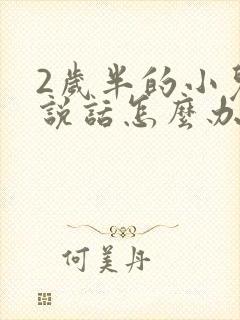 2歲半的小
說話怎麼办
何美丹